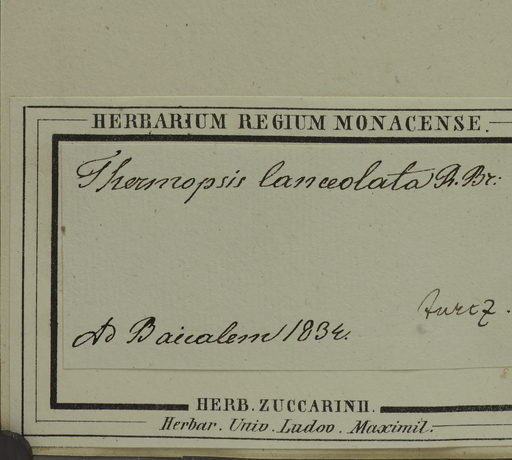 HERBARIUM REGIUM MONACENSE.
Thermopsis lanceolata R. Br:
Turcz.
Ad Baicalem 1834.
HERB. ZUCCARINII.
Herbar. Univ. Ludov. Maximil: